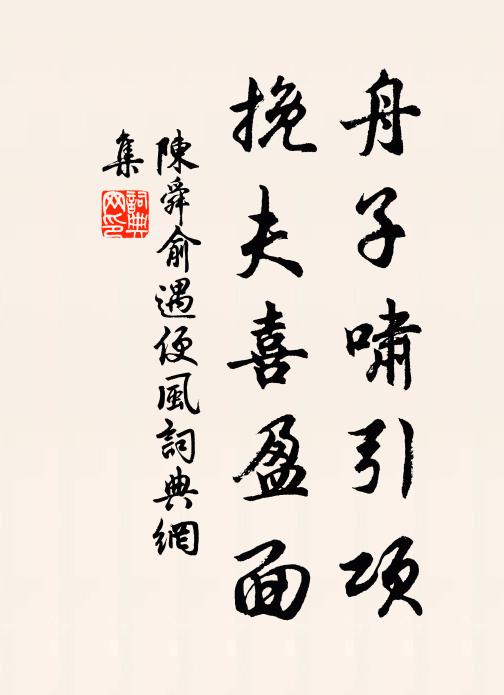 舟子嘯引项
挽夫喜盈面
陳舜俞遇便風詞典網
集
詞典
网印